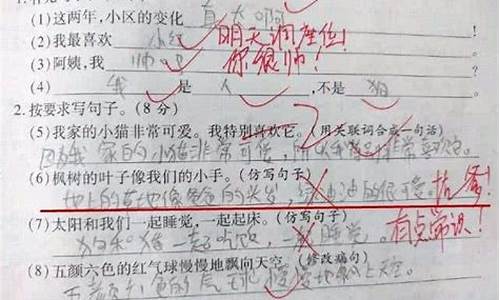 (1)这两年,小区的变化 真大啊
(2)我最喜欢 小红 明天调座位!
(3)阿姨,我 帅吧 你很帅!
(4) 我 是 人 ,不是 狗
2.按要求写句子。(8分)
(5)我家的小猫非常可爱。我特别喜欢它。(用关联词合成一句话)
因为我家的小猫非常可爱,所以我特别非常喜欢它。
(6)枫树的叶子像我们的小手。(仿写句子)
地上的草地像爸爸的头发,绿油油的很可爱。 抗议!
(7)太阳和我们一起睡觉,一起起床。(仿写句子)
狗和猪一起吃饭,一起睡觉。 有点常识!
(8)五颜六色的红气球慢慢地飘向天空。(修改病句)
五颜六色的气球慢慢地飘上天空。